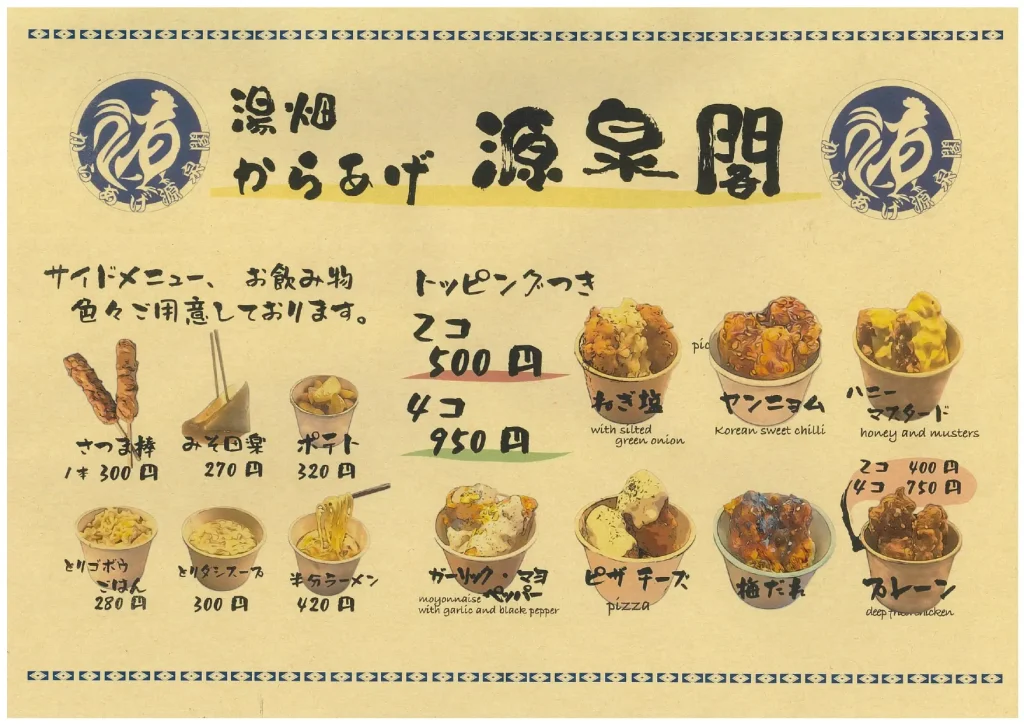 湯畑
からあげ 源泉閣
サイドメニュー、お飲み物
色々ご用意しております。
さつま棒
1本 300円
みそ田楽
270円
ポテト
320円
とりゴボウ
ごはん
280円
とりダシスープ
300円
半分ラーメン
420円
トッピングつき
2コ
500円
4コ
950円
ねぎ塩
with silted
green onion
ヤンニョム
Korean sweet chilli
ハニー
マスタード
honey and musters
ガーリック・マヨ
ペッパー
moyonnaise
with garlic and black pepper
ピザ チーズ
pizza
梅だれ
2コ 400円
4コ 750円
プレーン